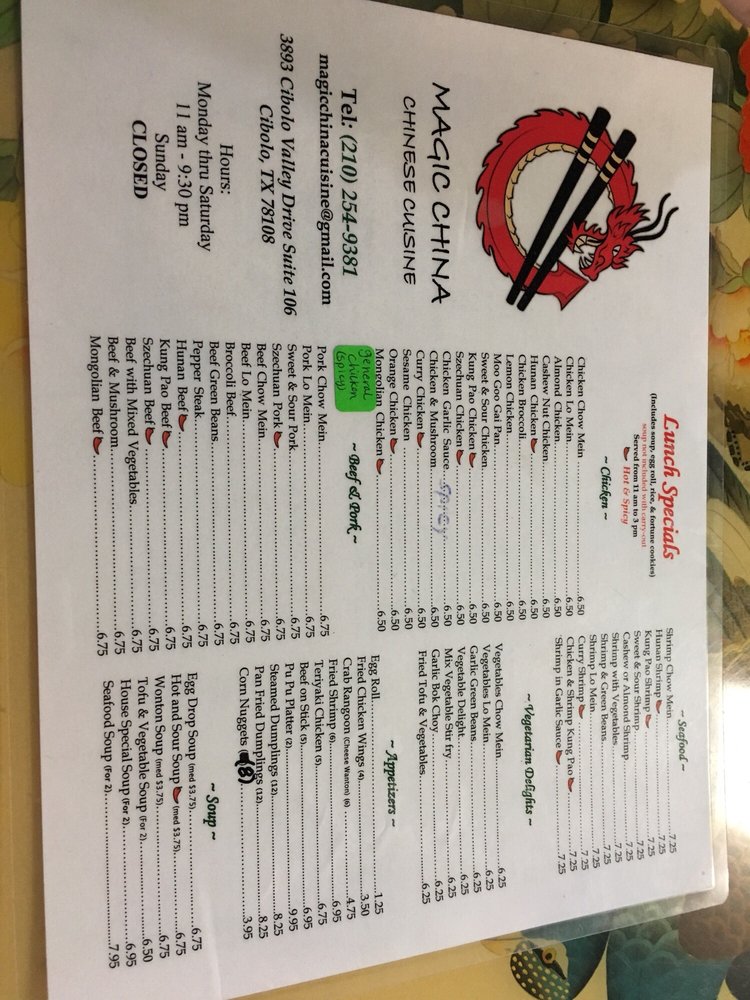 MAGIC CHINA
CHINESE CUISINE
Tel: (210) 254-9381
magicchinacuisine@gmail.com
3893 Cibolo Valley Drive Suite 106
Cibolo, TX 78108
Hours:
Monday thru Saturday
11 am - 9:30 pm
Sunday
CLOSED
Lunch Specials
(Includes soup, egg roll, rice, & fortune cookies)
soup not included with carry-out
Served from 11 am to 3 pm
Hot & Spicy
~ Chicken ~
Chicken Chow Mein 6.50
Chicken Lo Mein 6.50
Almond Chicken 6.50
Cashew Nut Chicken 6.50
Hunan Chicken 6.50
Chicken Broccoli 6.50
Lemon Chicken 6.50
Moo Goo Gai Pan 6.50
Sweet & Sour Chicken 6.50
Kung Pao Chicken 6.50
Szechuan Chicken 6.50
Chicken Garlic Sauce Spicy 6.50
Chicken & Mushroom 6.50
Curry Chicken 6.50
Sesame Chicken 6.50
Orange Chicken 6.50
Mongolian Chicken 6.50
general
Chicken
(spicy)
~ Beef & Pork ~
Pork Chow Mein 6.75
Pork Lo Mein 6.75
Sweet & Sour Pork 6.75
Szechuan Pork 6.75
Beef Chow Mein 6.75
Beef Lo Mein 6.75
Broccoli Beef 6.75
Beef Green Beans 6.75
Pepper Steak 6.75
Hunan Beef 6.75
Kung Pao Beef 6.75
Szechuan Beef 6.75
Beef with Mixed Vegetables 6.75
Beef & Mushroom 6.75
Mongolian Beef 6.75
~ Seafood ~
Shrimp Chow Mein 7.25
Hunan Shrimp 7.25
Kung Pao Shrimp 7.25
Sweet & Sour Shrimp 7.25
Cashew or Almond Shrimp 7.25
Shrimp with Vegetables 7.25
Shrimp & Green Beans 7.25
Shrimp Lo Mein 7.25
Curry Shrimp 7.25
Chicken & Shrimp Kung Pao 7.25
Shrimp in Garlic Sauce 7.25
~ Vegetarian Delights ~
Vegetables Chow Mein 6.25
Vegetables Lo Mein 6.25
Garlic Green Beans 6.25
Vegetable Delight 6.25
Mix Vegetable Stir fry 6.25
Garlic Bok Choy 6.25
Fried Tofu & Vegetables 6.25
~ Appetizers ~
Egg Roll 1.25
Fried Chicken Wings (4) 3.50
Crab Rangoon (Cheese Wanton) (6) 4.75
Fried Shrimp (6) 6.95
Teriyaki Chicken (5) 6.75
Beef on Stick (5) 6.95
Pu Pu Platter (2) 9.95
Steamed Dumplings (12) 8.25
Pan Fried Dumplings (12) 8.25
Corn Nuggets (8) 3.95
~ Soup ~
Egg Drop Soup (med $3.75) 6.75
Hot and Sour Soup (med $3.75) 6.75
Wonton Soup (med $3.75) 6.75
Tofu & Vegetable Soup (For 2) 6.50
House Special Soup (For 2) 6.95
Seafood Soup (For 2) 7.95